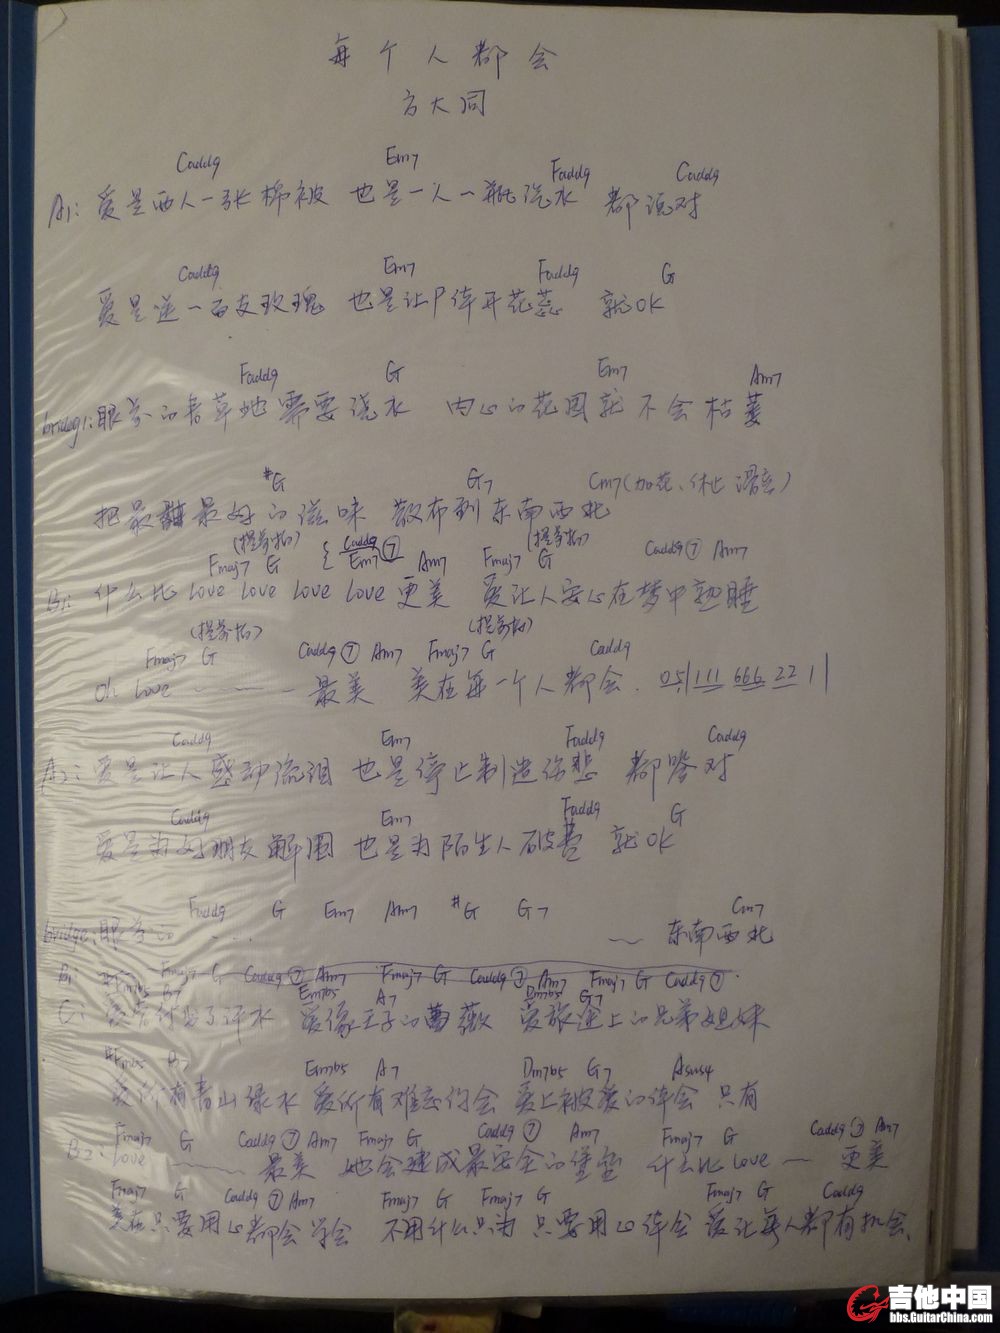 每个人都会
方大同
Cadd9 Em7 Fadd9 Cadd9
A1: 爱是两人一张棉被 也是一人一瓶汽水 都说对
Cadd9 Em7 Fadd9 G
爱是送一百支玫瑰 也是让户体开花蕊 就OK
Fadd9 G Em7 Am7
bridg1: 眼前的青草地需要浇水 内心的花园就不会枯萎
#G G7 Cm7(加花、休止 滑音)
把最甜最好的滋味 散布到东南西北
(提前拍) { Cadd9 ⑦ (提前拍)
Fmaj7 G Em7 Am7 Fmaj7 G Cadd9 ⑦ Am7
B1: 什么比 love love love love 更美 爱让人安心在梦中熟睡
(提前拍) (提前拍)
Fmaj7 G Cadd9 ⑦ Am7 Fmaj7 G Cadd9
Oh love 最美 美在每一个人都会. 05|111 666 22 1|
Cadd9 Em7 Fadd9 Cadd9
A2: 爱是让人感动流泪 也是停止制造伤悲 都答对
Cadd9 Em7 Fadd9 G
爱是为好朋友解围 也是为陌生人破费 就OK
Fadd9 G Em7 Am7 #G G7 Cm7
bridge: 眼前的 ... ~ 东南西北
B1: Fmaj7 G Cadd9 ⑦ Am7 Fmaj7 G Cadd9 ⑦ Am7 Fmaj7 G Cadd9 ⑦
#Fm7b5 B7 Em7b5 A7 Dm7b5 G7
C: 爱常付出了汗水 爱像王子的蔷薇 爱旅途上的兄弟姐妹
#Fm7b5 B7 Em7b5 A7 Dm7b5 G7 Asus4
爱所有青山绿水 爱所有难忘约会 爱上被爱的体会 只有
Fmaj7 G Cadd9 ⑦ Am7 Fmaj7 G Cadd9 ⑦ Am7 Fmaj7 G Cadd9 ⑦ Am7
B2: love 最美 她会建成最安全的堡垒 什么比love — 更美
Fmaj7 G Cadd9 ⑦ Am7 Fmaj7 G Fmaj7 G Fmaj7 G Cadd9
美在只要用心都会学会 不用什么只需 只要用心体会 爱让每人都有机会.
吉他中国
bbs.GuitarChina.com